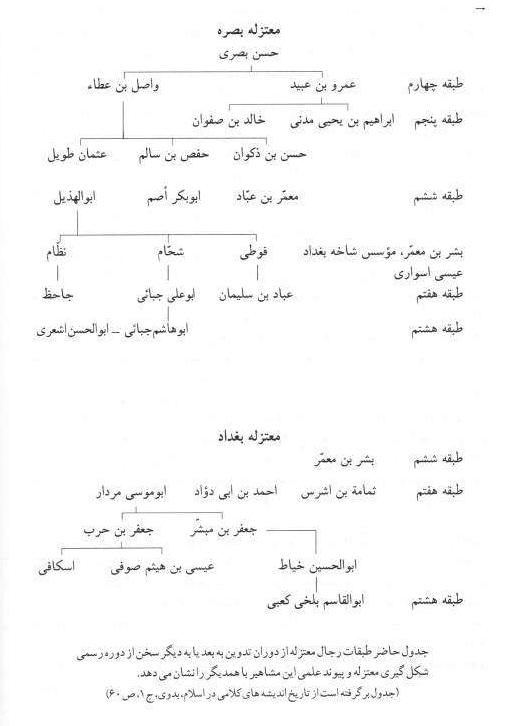 معتزله بصره
حسن بصری
طبقه چهارم عمرو بن عبید واصل بن عطاء
طبقه پنجم ابراهیم بن یحیی مدنی خالد بن صفوان
حسن بن ذکوان حفص بن سالم عثمان طویل
طبقه ششم معمّر بن عبّاد ابوبکر أصم ابوالهذیل
بشر بن معمّر، مؤسس شاخه بغداد فوطی شحّام نظّام
عیسی اسواری
طبقه هفتم عباد بن سلیمان ابوعلی جبائی جاحظ
طبقه هشتم ابوهاشم جبائی – ابوالحسن اشعری
معتزله بغداد
طبقه ششم بشر بن معمّر
طبقه هفتم ثمامة بن اشرس احمد بن ابی دؤاد ابوموسی مردار
جعفر بن مبشّر جعفر بن حرب
ابوالحسین خیاط عیسی بن هیثم صوفی اسکافی
طبقه هشتم ابوالقاسم بلخی کعبی
جدول حاضر طبقات رجال معتزله از دوران تدوین به بعد یا به دیگر سخن از دوره رسمی
شکل گیری معتزله و پیوند علمی این مشاهیر با همدیگر را نشان می دهد.
(جدول برگرفته است از تاریخ اندیشه های کلامی در اسلام، بدوی، ج ۱، ص ۶۰)